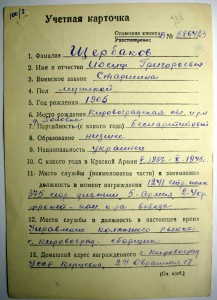 Учетная карточка
1. Фамилия Щербаков
2. Имя и отчество Иосиф Григорьевич
3. Воинское звание Старшина
4. Пол мужской
5. Год рождения 1905
6. Место рождения Кировоградская обл.
7. Партийность (с какого года) беспартийный
8. Образование низшее
9. Национальность украинец
10. С какого года в Красной Армии
11. Место службы (наименование части) и занимаемая
должность в момент награждения 1241 стр. полк
375 стр. дивизии, 5-
12. Место службы и должность в настоящее время
Управление колхозного рынка
г. Кировоград - сторож
13. Домашний адрес награжденного г. Кировоград
УССР
(См. на об.)